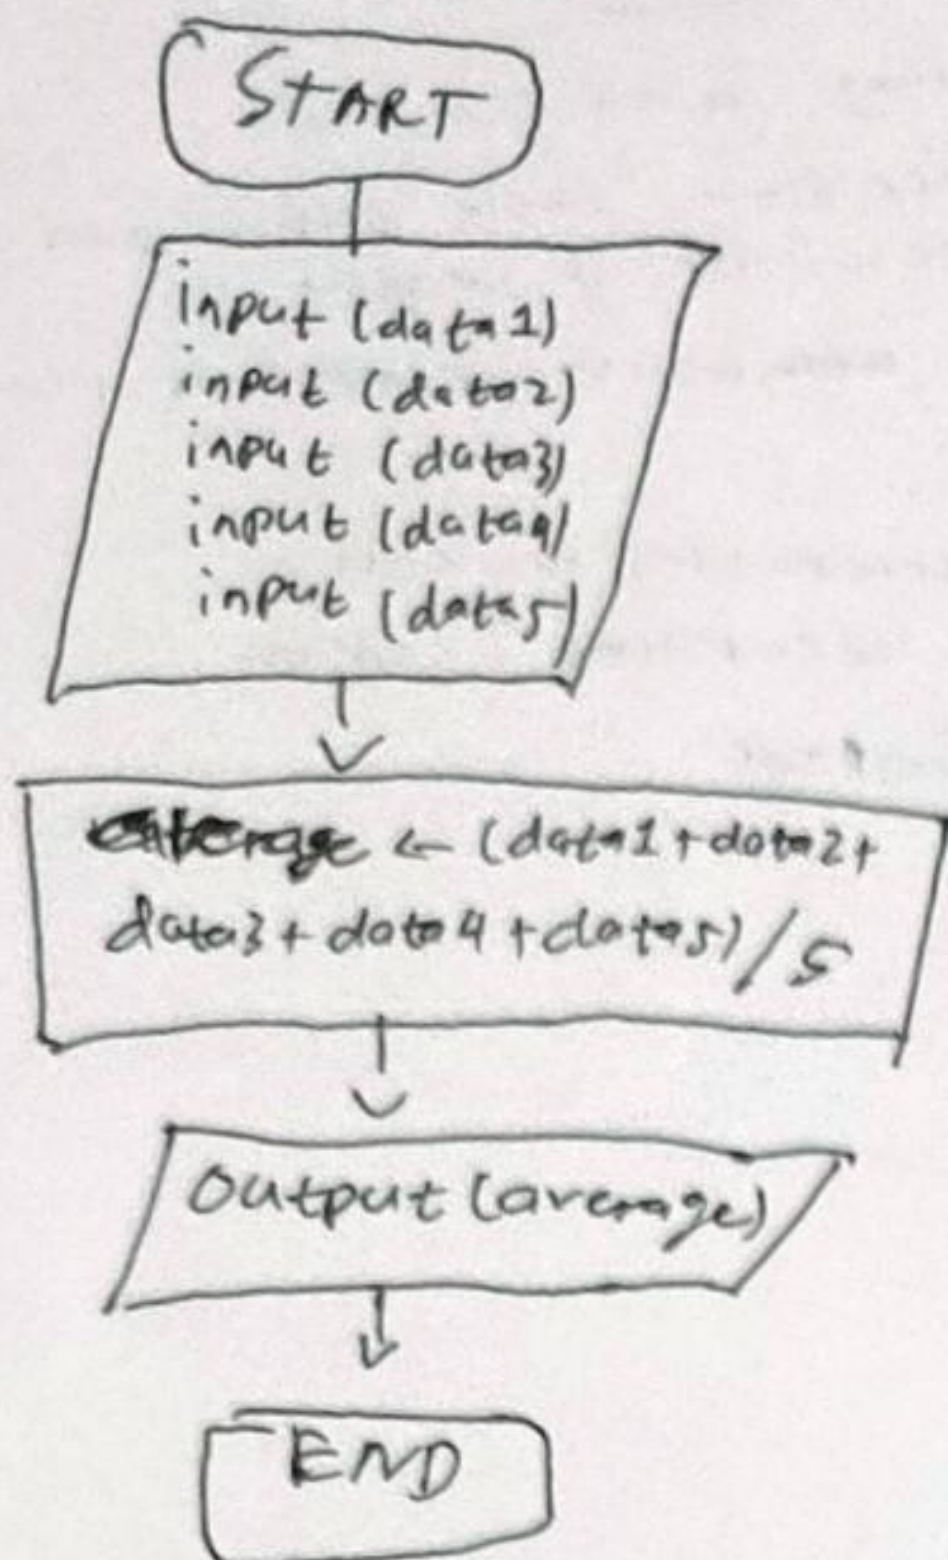 START
input (data1)
input (data2)
input (data3)
input (data4)
input (data5)
average ← (data1+data2+
data3+data4+data5)/5
output (average)
END